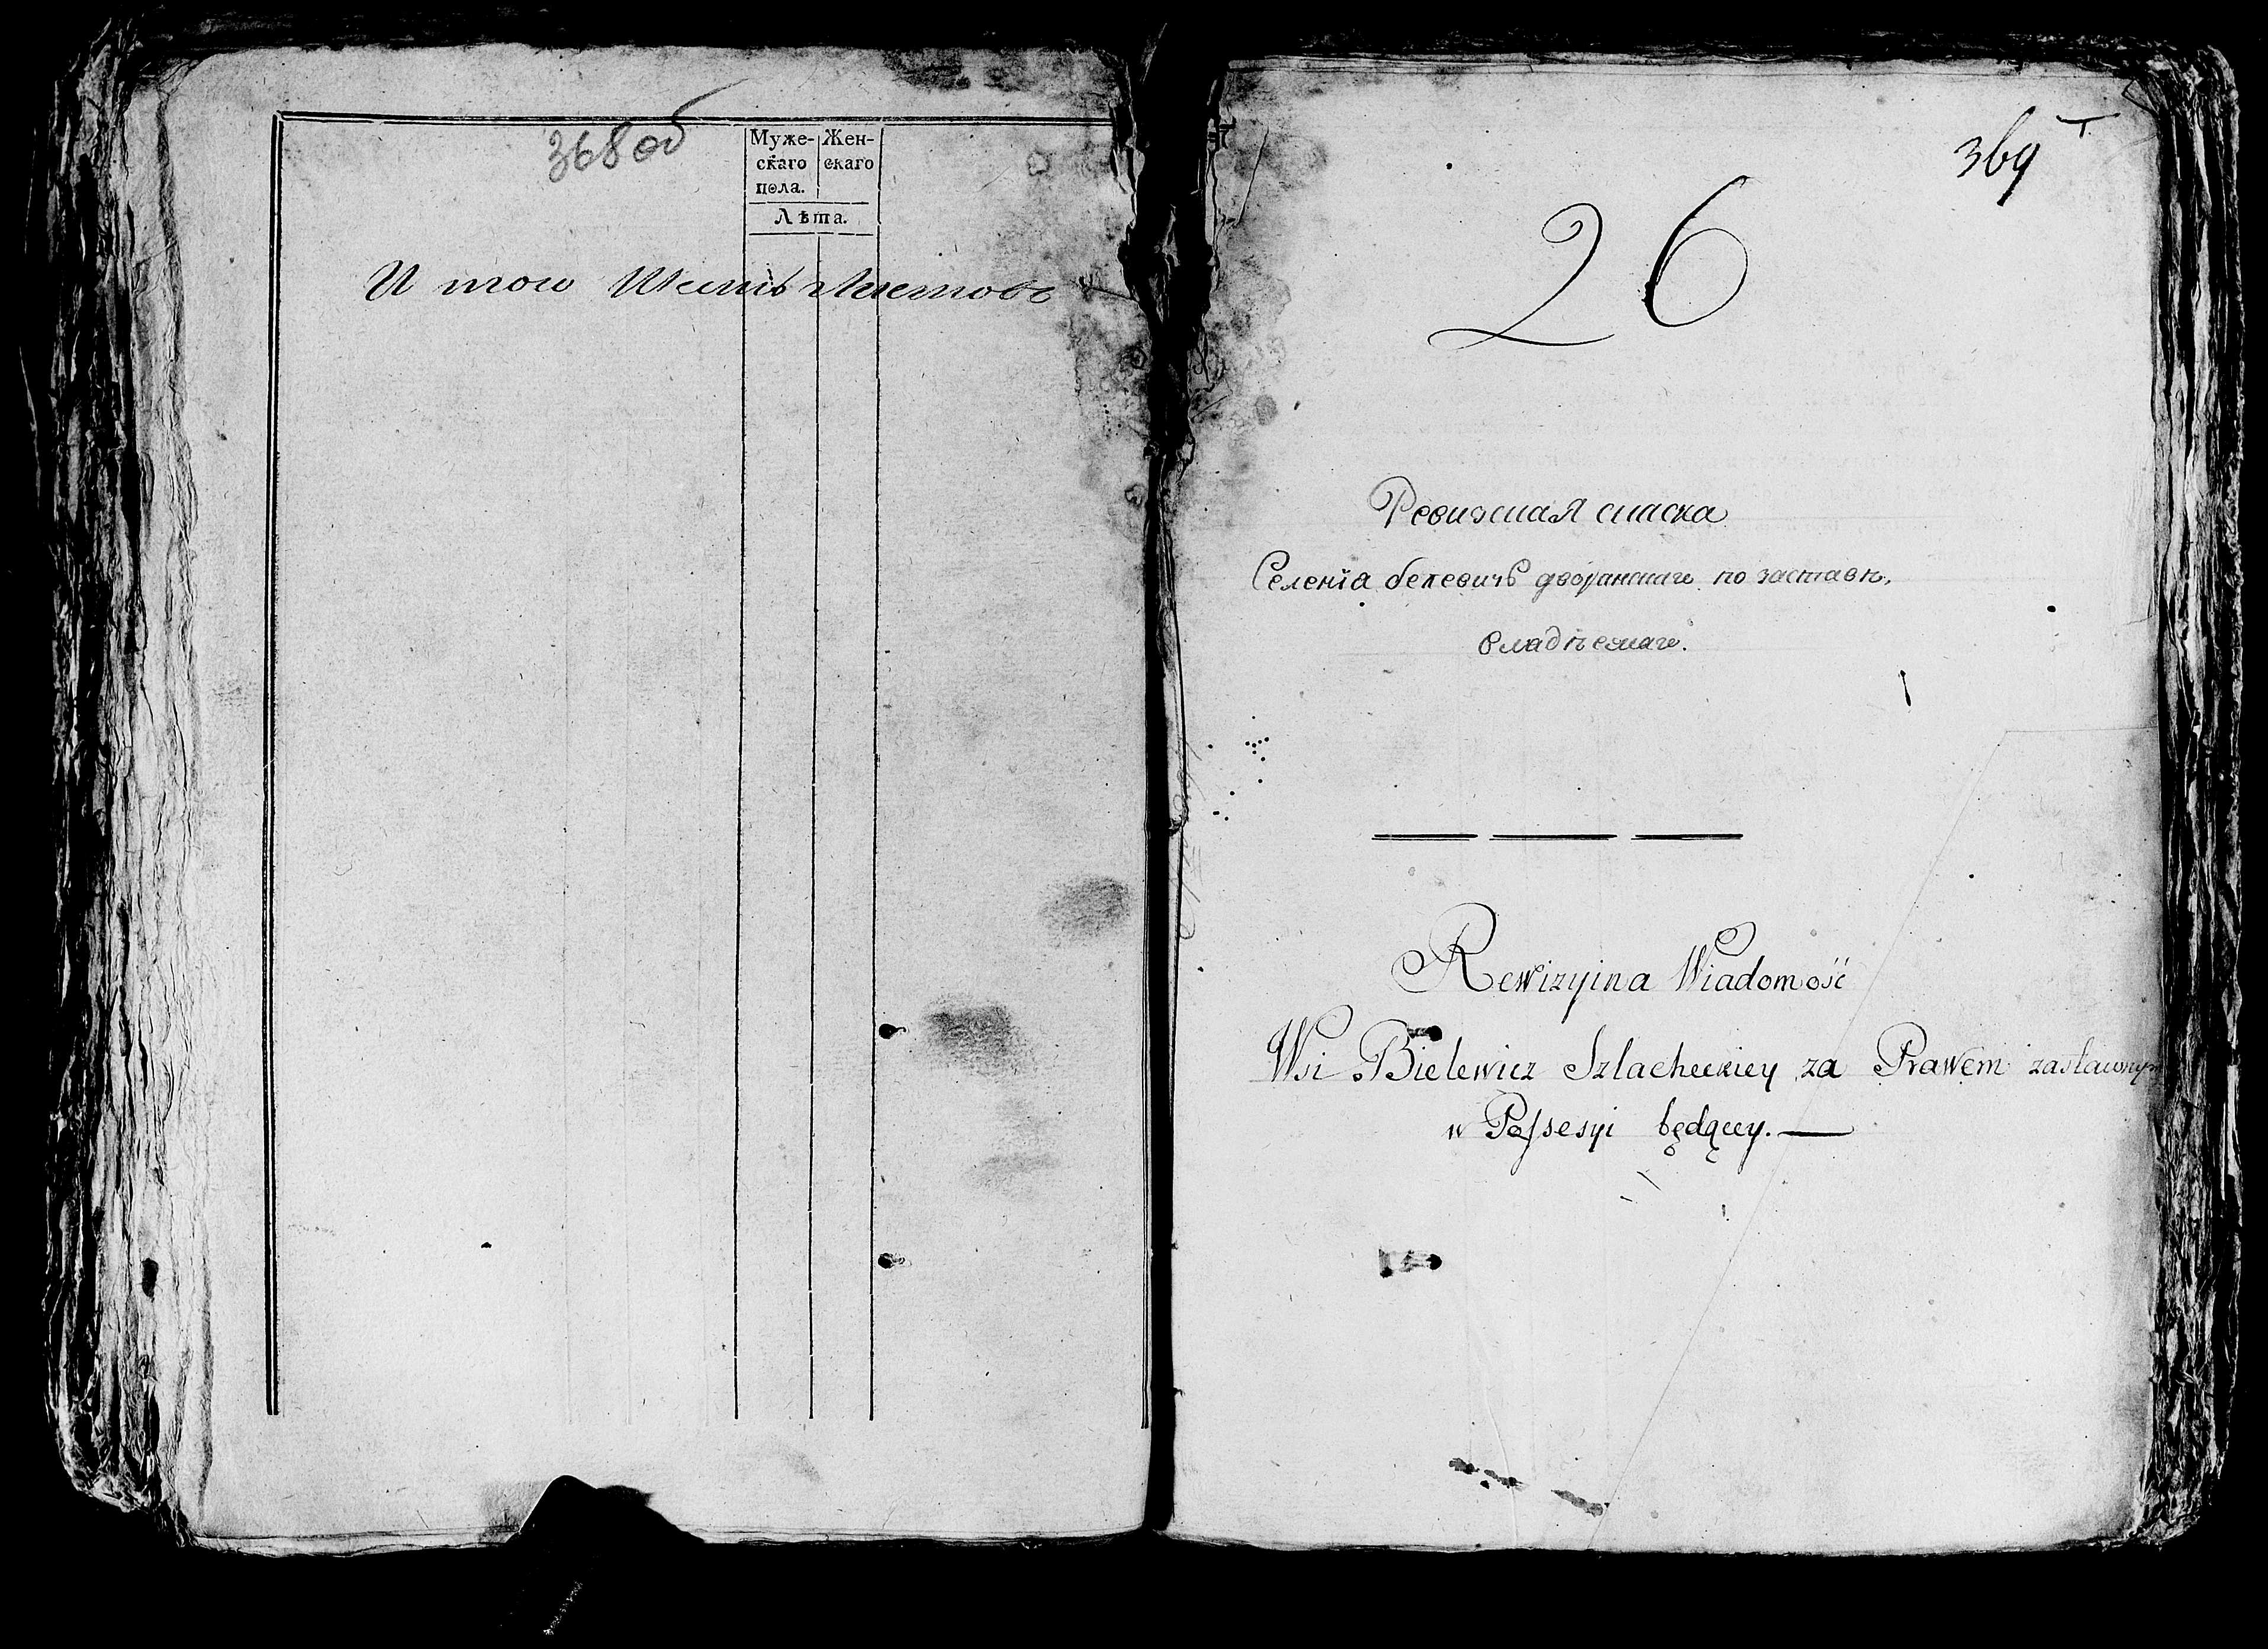 368 об
Муже-
скаго
пола.
Жен-
скаго
Лѣта.
И того Шесть Листовъ
369
26
Ревизская сказка
Селенія белевичъ дворанскаго по заставѣ,
владѣемаго.
Rewizyina Wiadomość
Wsi Bielewicz Szlacheckiey za Prawem zastawnym
w Possesyi będącey.